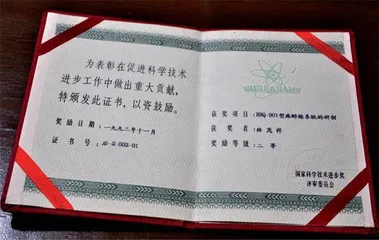 为表彰在促进科学技术
进步工作中做出重大贡献,
特颁发此证书,以资鼓励。
奖励日期:一九九二年十一月
证书号:
获奖项目:型麻醉枪系统的研制
获奖者:林茂祥
奖励等级:二等
国家科学技术进步奖
评审委员会